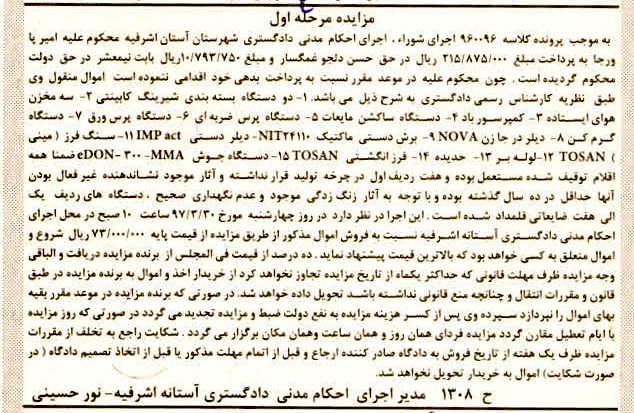 مزایده مرحله اول
به موجب پرونده کلاسه ۹۶۰۰۹۶ اجرای شوراء ، اجرای احکام مدنی دادگستری شهرستان آستان اشرفیه محکوم علیه امیر پا
ورجا به پرداخت مبلغ ۲۱۵/۸۷۵/۰۰۰ ریال در حق حسن دلجو غمگسار و مبلغ ۱۰/۷۹۳/۷۵۰ریال بابت نیمعشر در حق دولت
محکوم گردیده است . چون محکوم علیه در موعد مقرر نسبت به پرداخت بدهی خود اقدامی ننموده است اموال منقول وی
طبق نظریه کارشناس رسمی دادگستری به شرح ذیل می باشد. ۱- دو دستگاه بسته بندی شیرینگ کابینتی ۲- سه مخزن
هوای ایستاده ۳- کمپرسور باد ۴- دستگاه ساکشن مایعات ۵- دستگاه پرس ضربه ای ۶- دستگاه پرس ورق ۷- دستگاه
گرم کن ۸- دیلر در جا زن NOVA ۹- برش دستی ماکتیک NIT۲۴۱۱۰- دیلر دستی IMP act ۱۱-سنگ فرز ( مینی
) TOSAN ۱۲-لوله بر ۱۳- حدیده ۱۴- فرز انگشتی TOSAN ۱۵-دستگاه جوش eDON- ۳۰۰ -MMA ضمنا همه
اقلام توقیف شده مستعمل بوده و هفت ردیف اول در چرخه تولید قرار نداشته و آثار موجود نشاندهنده غیر فعال بودن
آنها حداقل در ده سال گذشته بوده و با توجه به آثار زنگ زدگی موجود و عدم نگهداری صحیح ، دستگاه های ردیف یک
الی هفت ضایعاتی قلمداد شده است . این اجرا در نظر دارد در روز چهارشنبه مورخ ۹۷/۳/۳۰ ساعت ۱۰ صبح در محل اجرای
احکام مدنی دادگستری آستانه اشرفیه نسبت به فروش اموال مذکور از طریق مزایده از قیمت پایه ۷۳/۰۰۰/۰۰۰ ریال شروع و
اموال متعلق به کسی خواهد بود که بالاترین قیمت پیشنهاد نماید . ده درصد از قیمت فی المجلس از برنده مزایده دریافت و الباقی
وجه مزایده ظرف مهلت قانونی که حداکثر یکماه از تاریخ مزایده تجاوز نخواهد کرد از خریدار اخذ و اموال به برنده مزایده در طبق
قانون و مقررات انتقال و چنانچه منع قانونی نداشته باشد تحویل داده خواهد شد. در صورتی که برنده مزایده در موعد مقرر بقیه
بهای اموال را نپردازد سپرده وی پس از کسر هزینه مزایده به نفع دولت ضبط و مزایده تجدید می گردد در صورتی که روز مزایده
با ایام تعطیل مقارن گردد مزایده فردای همان روز و همان ساعت وهمان مکان برگزار می گردد . شکایت راجع به تخلف از مقررات
مزایده ظرف یک هفته از تاریخ فروش به دادگاه صادر کننده ارجاع و قبل از اتمام مهلت مذکور یا قبل از اتخاذ تصمیم دادگاه ( در
صورت شکایت) اموال به خریدار تحویل نخواهد شد.
ح ۱۳۰۸ مدیر اجرای احکام مدنی دادگستری آستانه اشرفیه- نور حسینی